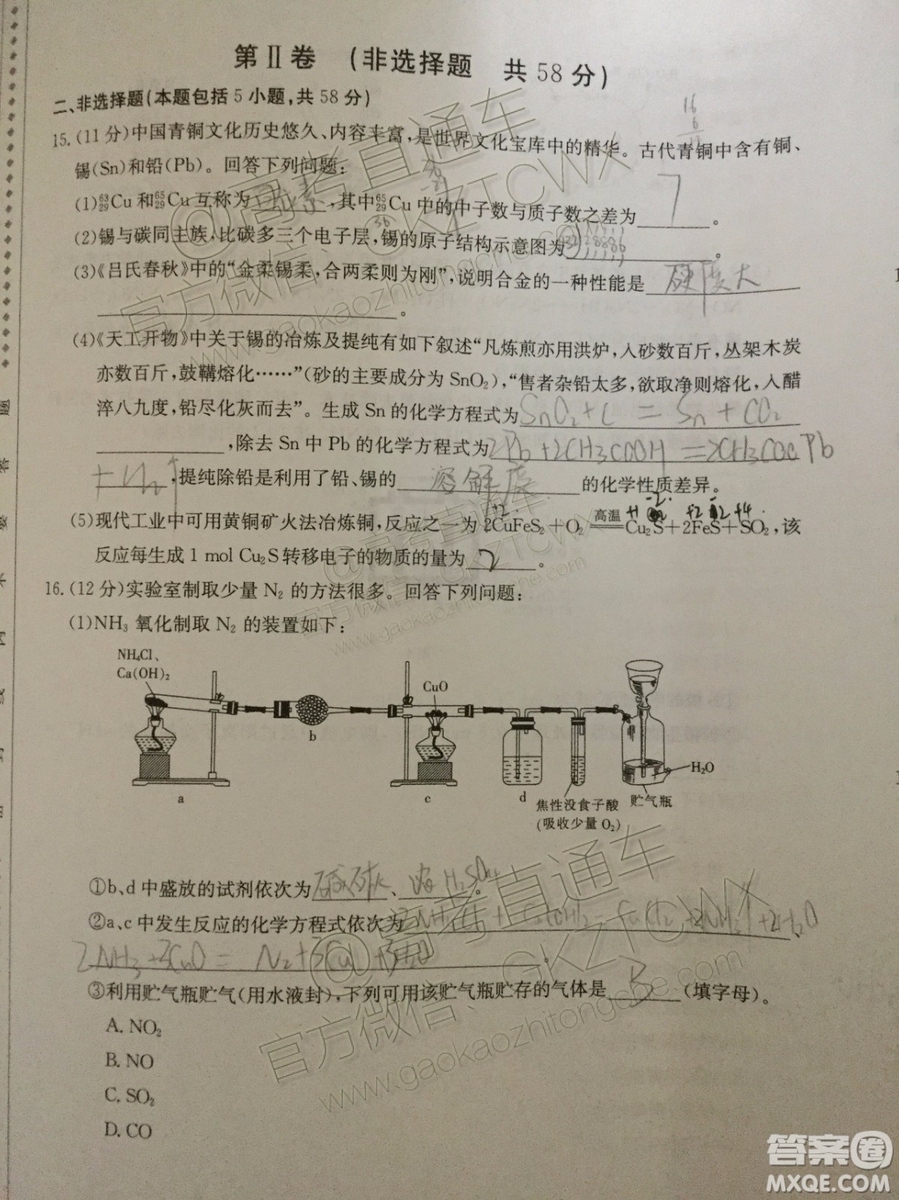 第Ⅱ卷 (非选择题 共58分)
二、非选择题(本题包括5小题,共58分)
15.(11分)中国青铜文化历史悠久、内容丰富,是世界文化宝库中的精华。古代青铜中含有铜、
锡(Sn)和铅(Pb)。回答下列问题:
(1)⁶³₂₉Cu和⁶⁵₂₉Cu互称为 ,其中⁶⁵₂₉Cu中的中子数与质子数之差为 7 。
(2)锡与碳同主族,比碳多三个电子层,锡的原子结构示意图为 。
(3)《吕氏春秋》中的“金柔锡柔,合两柔则为刚”,说明合金的一种性能是 硬度大
。
(4)《天工开物》中关于锡的冶炼及提纯有如下叙述“凡炼煎亦用洪炉,入砂数百斤,丛架木炭
亦数百斤,鼓鞲熔化……”(砂的主要成分为SnO₂),“售者杂铅太多,欲取净则熔化,入醋
淬八九度,铅尽化灰而去”。生成Sn的化学方程式为 SnO₂+C=Sn+CO₂
,除去Sn中Pb的化学方程式为 2Pb+2CH₃COOH=2CH₃COOPb
+H₂↑ ,提纯除铅是利用了铅、锡的 溶解度 的化学性质差异。
(5)现代工业中可用黄铜矿火法冶炼铜,反应之一为2CuFeS₂+O₂ 高温 Cu₂S+2FeS+SO₂,该
反应每生成1 mol Cu₂S转移电子的物质的量为 2 。
16.(12分)实验室制取少量N₂的方法很多。回答下列问题:
(1)NH₃氧化制取N₂的装置如下:
NH₄Cl、
Ca(OH)₂
CuO
b
H₂O
a
c
d
焦性没食子酸
(吸收少量O₂)
贮气瓶
①b、d中盛放的试剂依次为 碱石灰 、 浓H₂SO₄ 。
②a、c中发生反应的化学方程式依次为
2NH₃+3CuO=N₂+3Cu+3H₂O 。
③利用贮气瓶贮气(用水液封),下列可用该贮气瓶贮存的气体是 B (填字母)。
A. NO₂
B. NO
C. SO₂
D. CO
@高考直通车
官方微信:GKZTCWX
www.gaokaozhitongche.com
答案圈
MXQE.COM